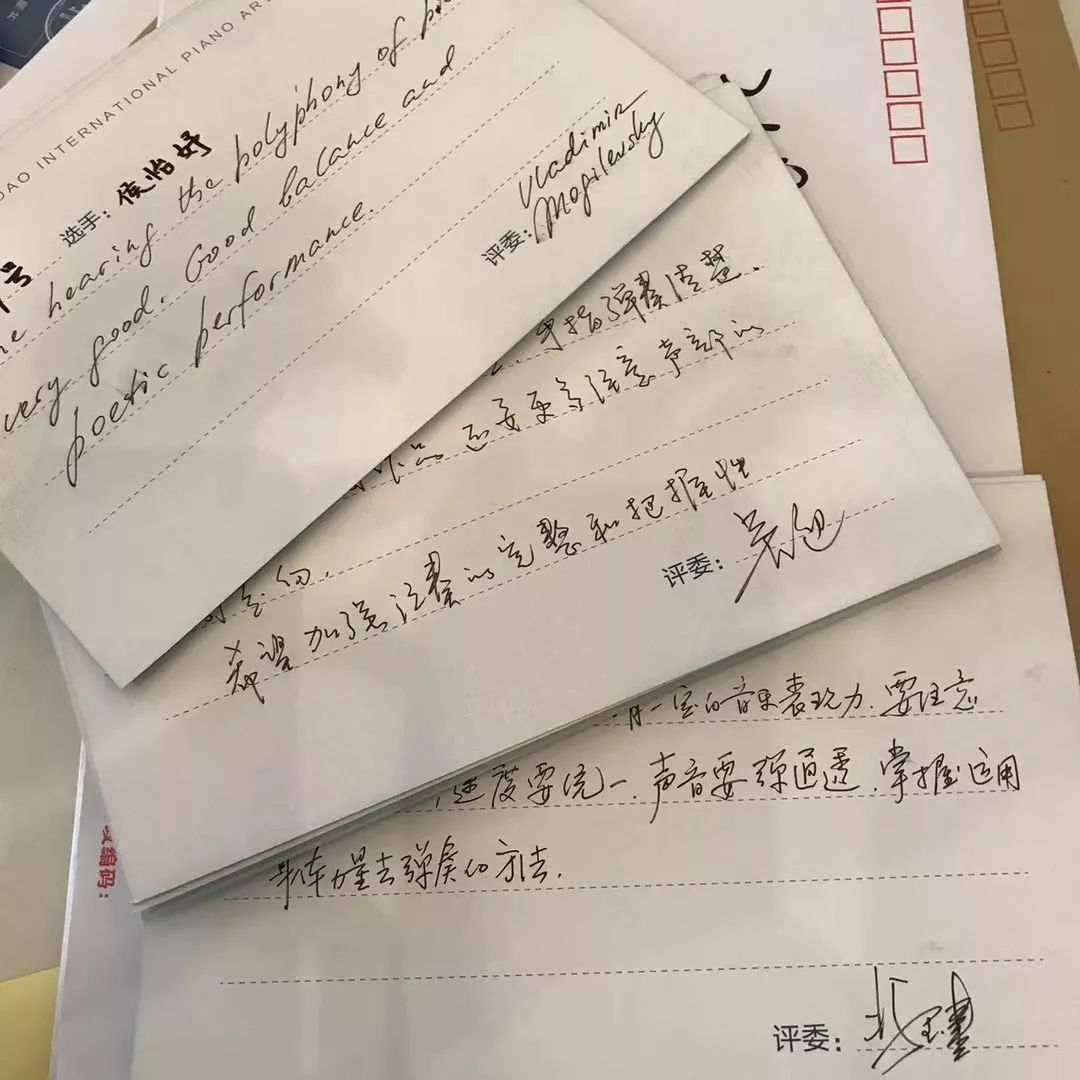 DAO INTERNATIONAL PIANO AR
号
选手：侯怡妤
hearing the polyphony of
very good. Good balance and
poetic performance.
评委：Vladimir
Mogilevsky
手指弹奏清楚.
作品 还要更多注意声部的
匀.
希望加强演奏的完整和把握性
评委：
一定的音乐表现力.要注意
,速度要统一.声音要弹通透.掌握运用
身体力量去弹奏的方法.
评委：
编码：